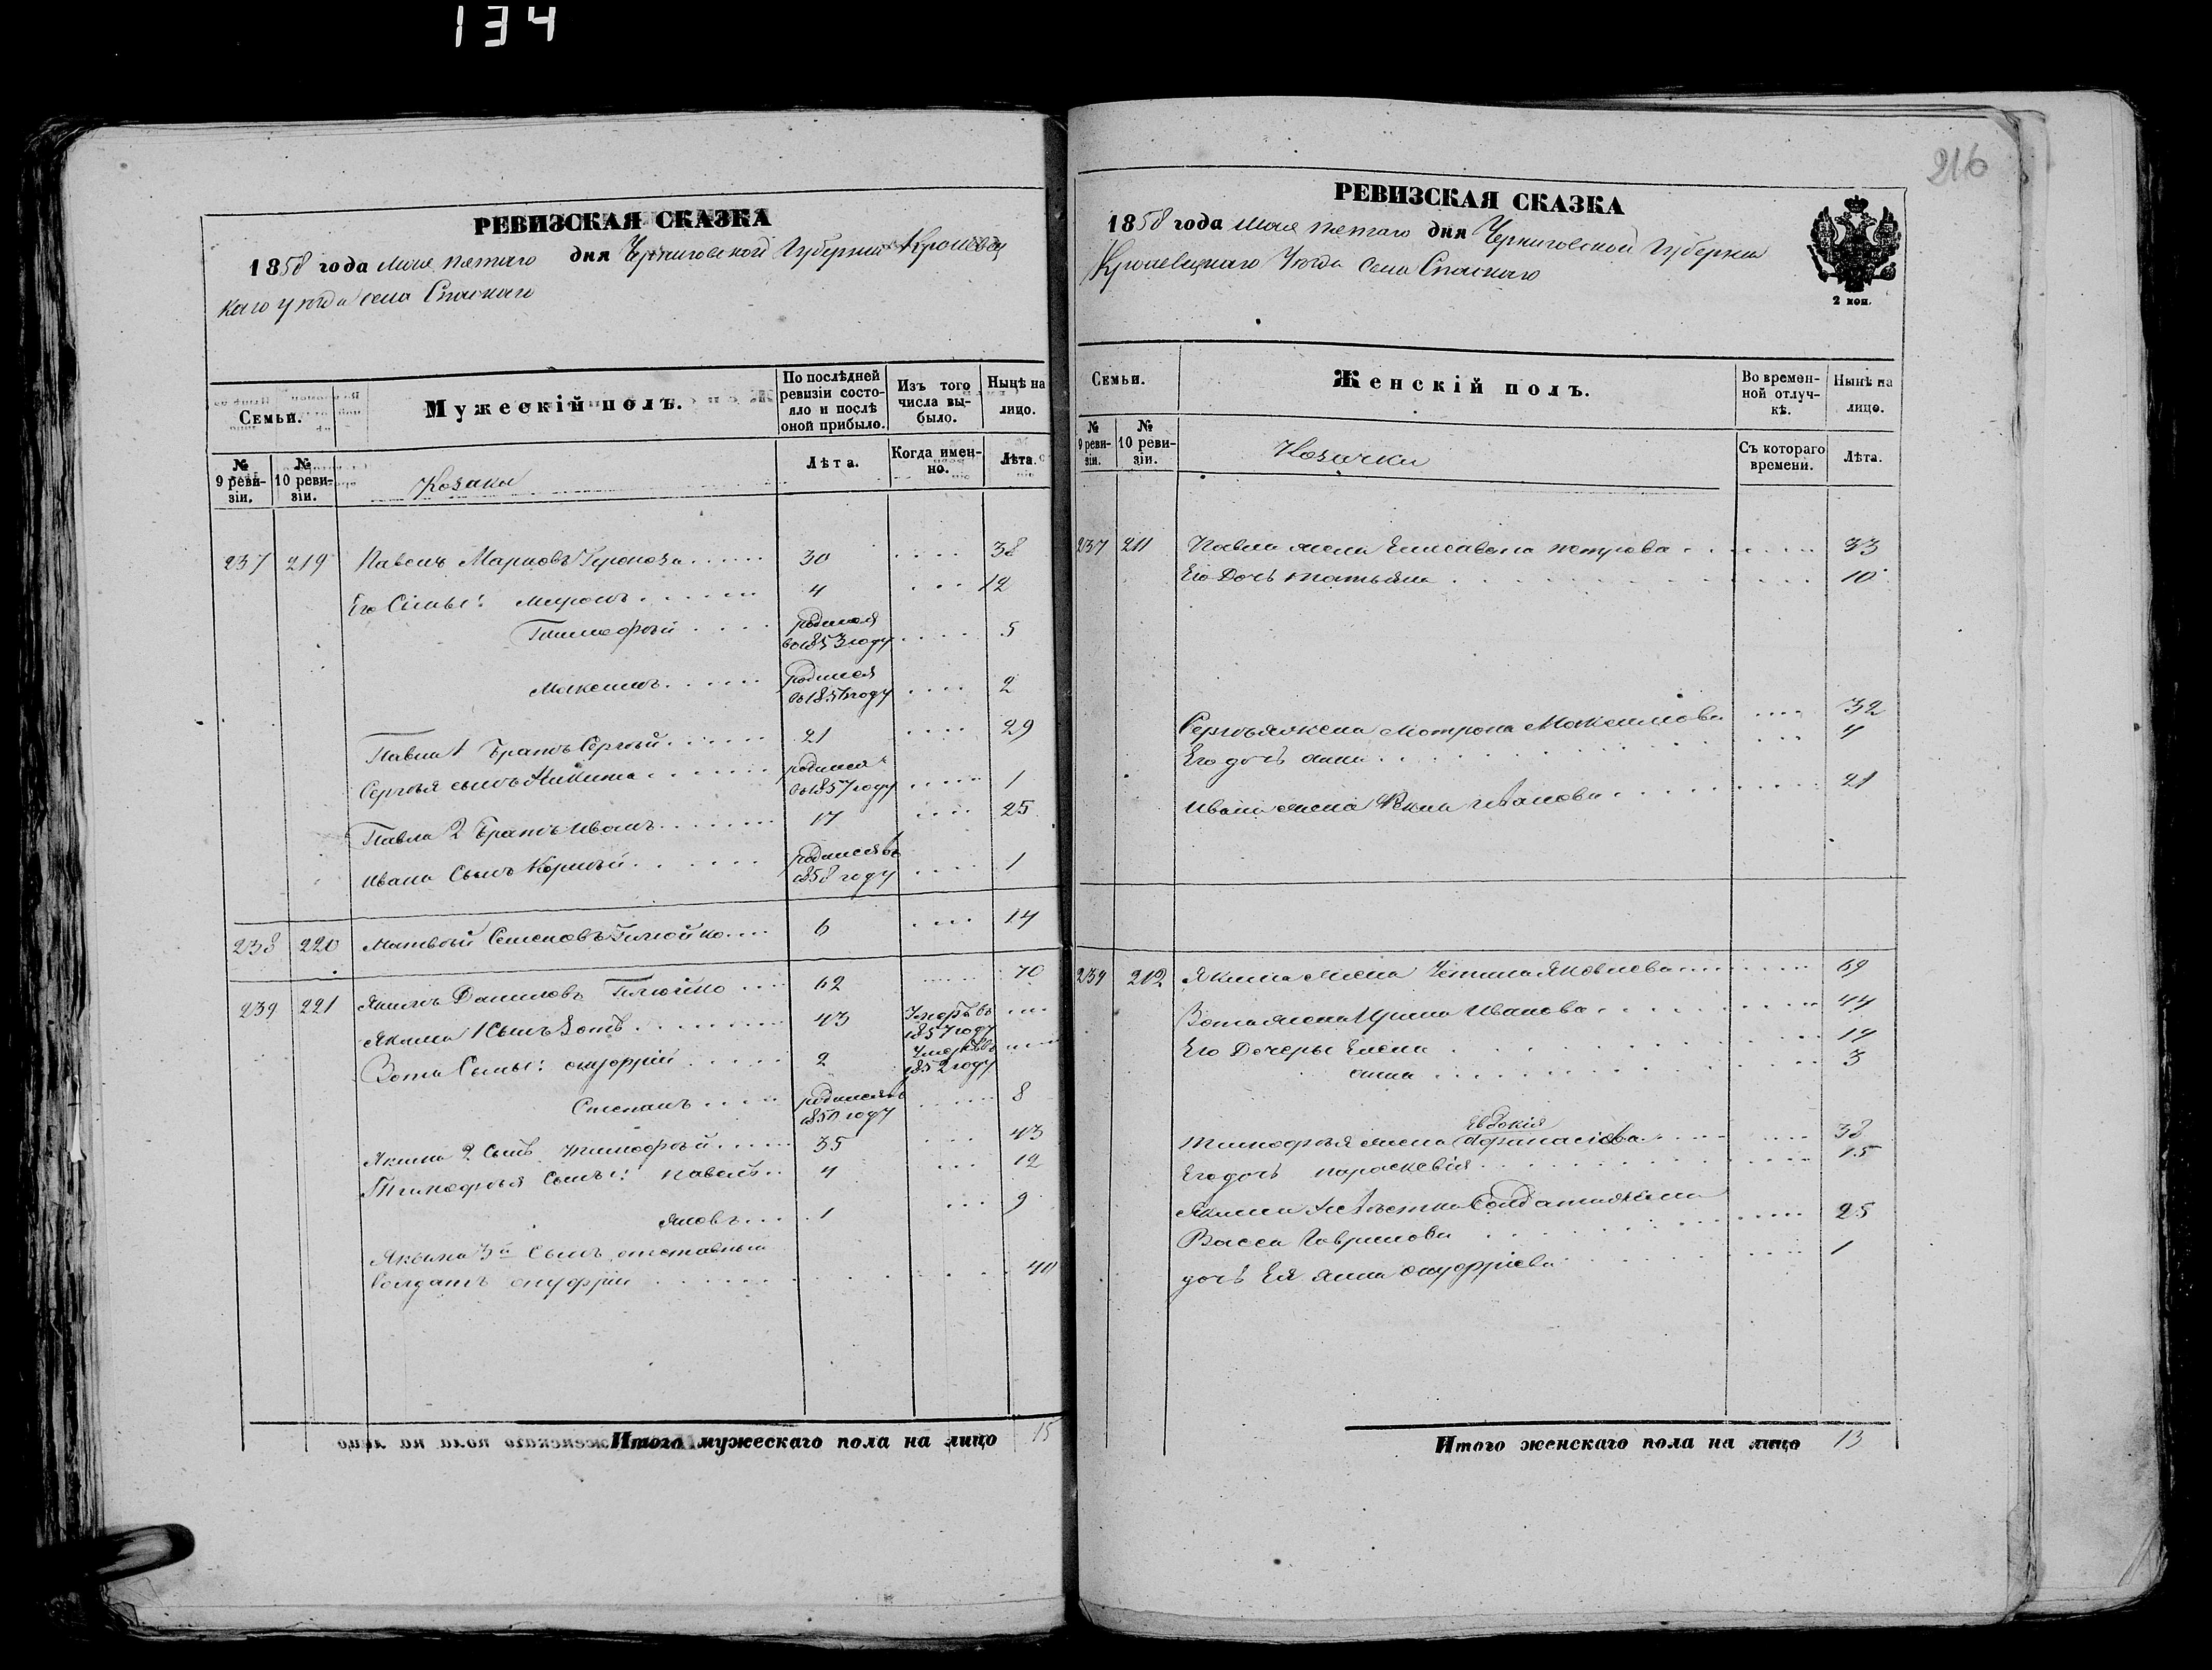 134
РЕВИЗСКАЯ СКАЗКА
1858 года мая пятаго дня Черниговской Губернии Кролевец
каго уѣзда села Спаскаго
Семьи.
Мужескій полъ.
По послѣдней ревизіи состояло и послѣ оной прибыло.
Изъ того числа выбыло.
Нынѣ на лицо.
№ 9 ревизіи.
№ 10 ревизіи.
Козаки
Лѣта.
Когда именно.
Лѣта.
237 219 Павелъ Марковъ 30 38
Его Сыны: Миронъ 4 12
Тимофѣй родился во 1853 году 5
Максимъ родился во 1856 году 2
Павла 1 Братъ Сергѣй 21 29
Сергѣя сынъ Никита родился во 1857 году 1
Павла 2 Братъ Иванъ 17 25
Ивана Сынъ Корнѣй родился въ 1858 году 1
238 220 Матвѣй Семеновъ 6 14
239 221 Якимъ Даниловъ 62 70
Якима 1 Сынъ Зотъ 43 Умеръ въ 1857 году
Зота Сыны: онуфрій 2 Умеръ въ 1852 году
Степанъ родился въ 1850 году 8
Якима 2 Сынъ тимофѣй 35 43
Тимофѣя Сыны: павелъ 4 12
яковъ 1 9
Якима 3й Сынъ отставный
Солдатъ онуфрій 40
Итого мужескаго пола на лицо 15
216
РЕВИЗСКАЯ СКАЗКА
1858 года мая пятаго дня Черниговской Губернии
Кролевецкаго Уѣзда села Спаскаго
2 коп.
Семьи.
Женскій полъ.
Во временной отлучкѣ.
Нынѣ на лицо.
№ 9 ревизіи.
№ 10 ревизіи.
Козачки
Съ котораго времени.
Лѣта.
237 211 Павла жена Елисавета петрова 33
Его Дочь татьяна 10
Сергѣя жена Мотрона Максимова 32
Его дочь анна 4
Ивана жена Ивановa 21
239 212 Якима жена Яковлева 69
Зота жена Ирина Иванова 44
Его Дочеры Елена 14
анна 3
Евдокія
тимофѣя жена Афанасіева 38
Его дочь параскевія 15
Якима Невѣстка Солдатка жена
Васса Гаврилова 25
дочь Ея анна онуфріева 1
Итого женскаго пола на лицо 13